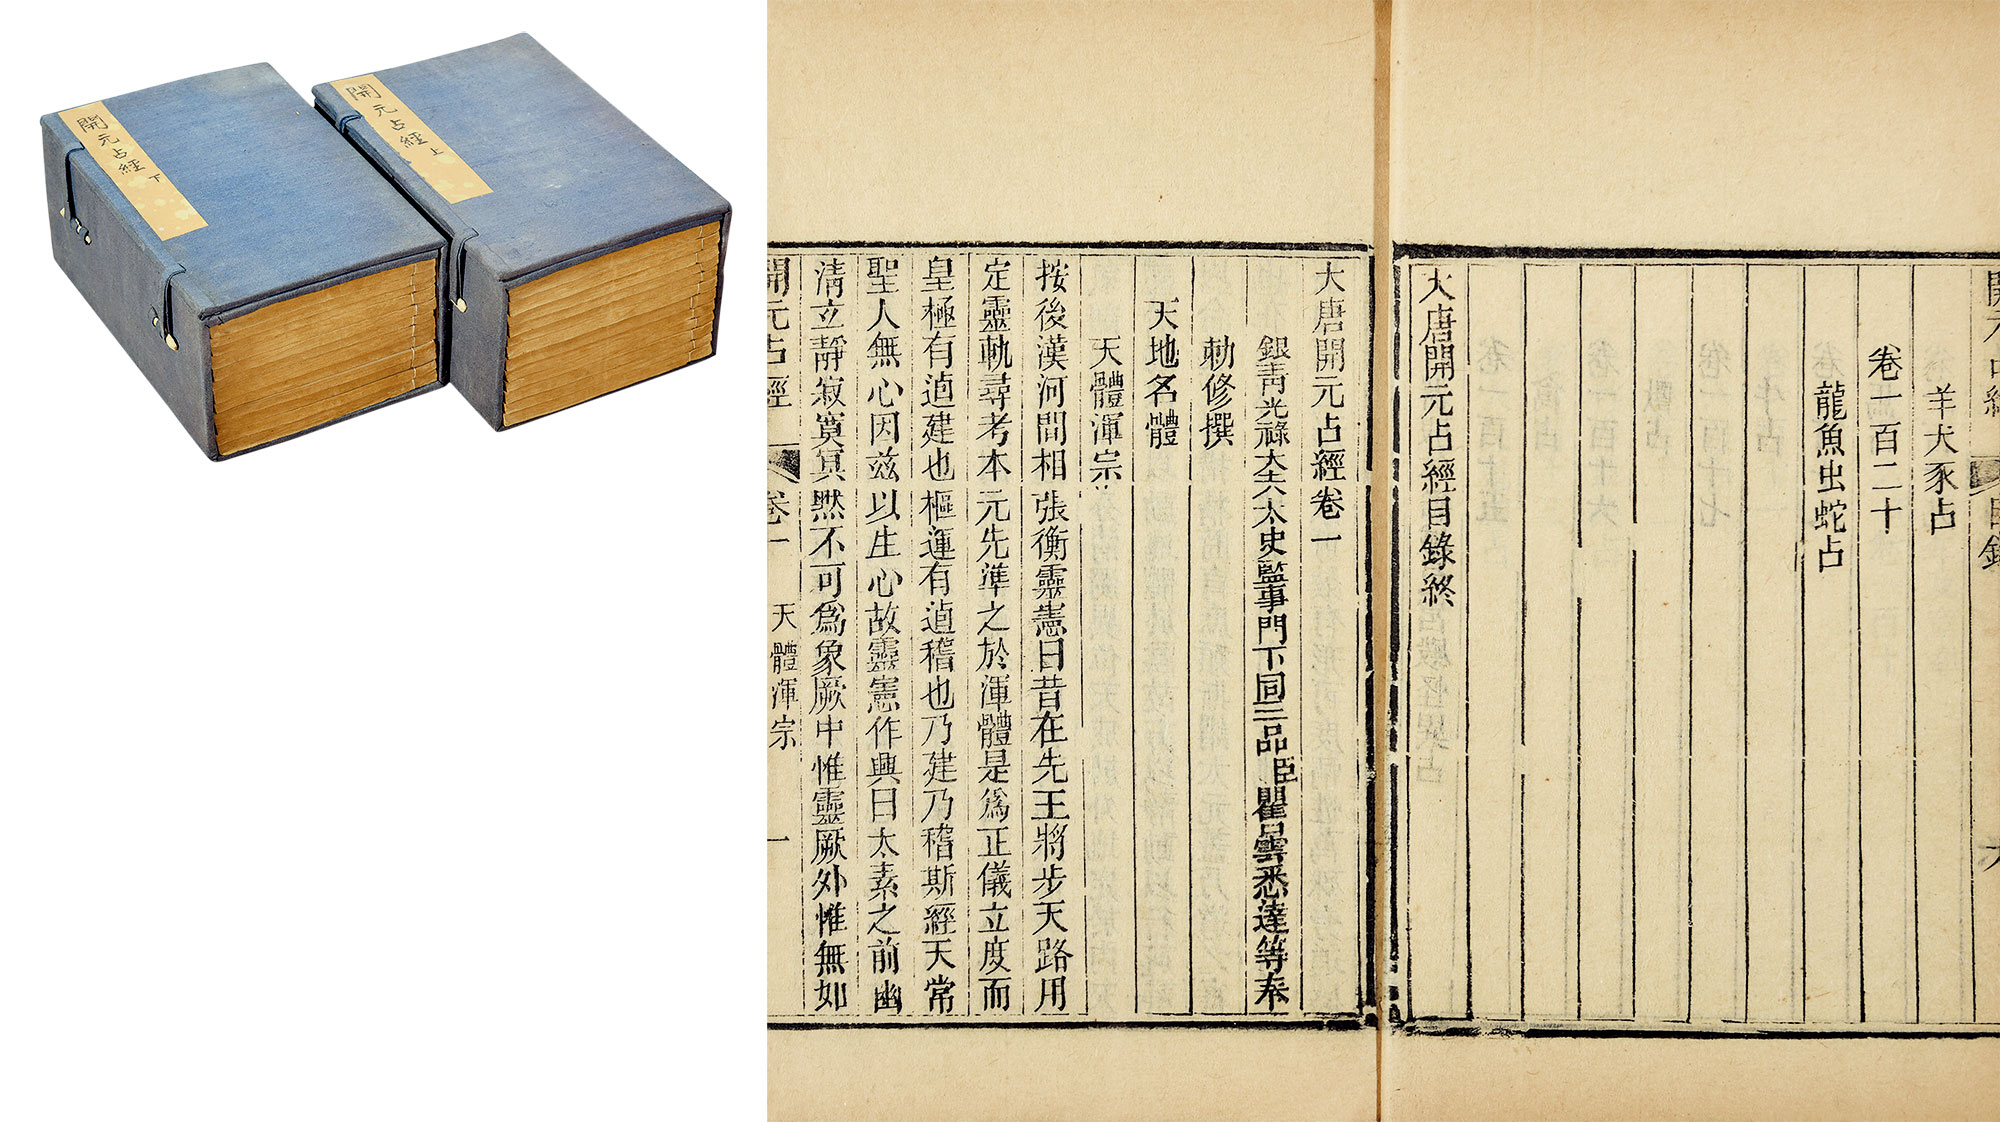 開元占經 下
開元占經 上
羊犬豕占
卷一百二十
龍魚虫蛇占
大唐開元占經目錄終
大唐開元占經卷一
銀靑光祿大夫太史監事門下同三品臣瞿曇悉達等奉
勅修撰
天地名體
天體渾宗
按後漢河間相張衡靈憲曰昔在先王將步天路用
定靈軌尋考本元先準之於渾體是爲正儀立度而
皇極有逌建也樞運有逌稽也乃建乃稽斯經天常
聖人無心因茲以生心故靈憲作興曰太素之前幽
淸立靜寂寞冥黙不可爲象厥中惟靈厥外惟無如
開元占經 卷一 天體渾宗 一